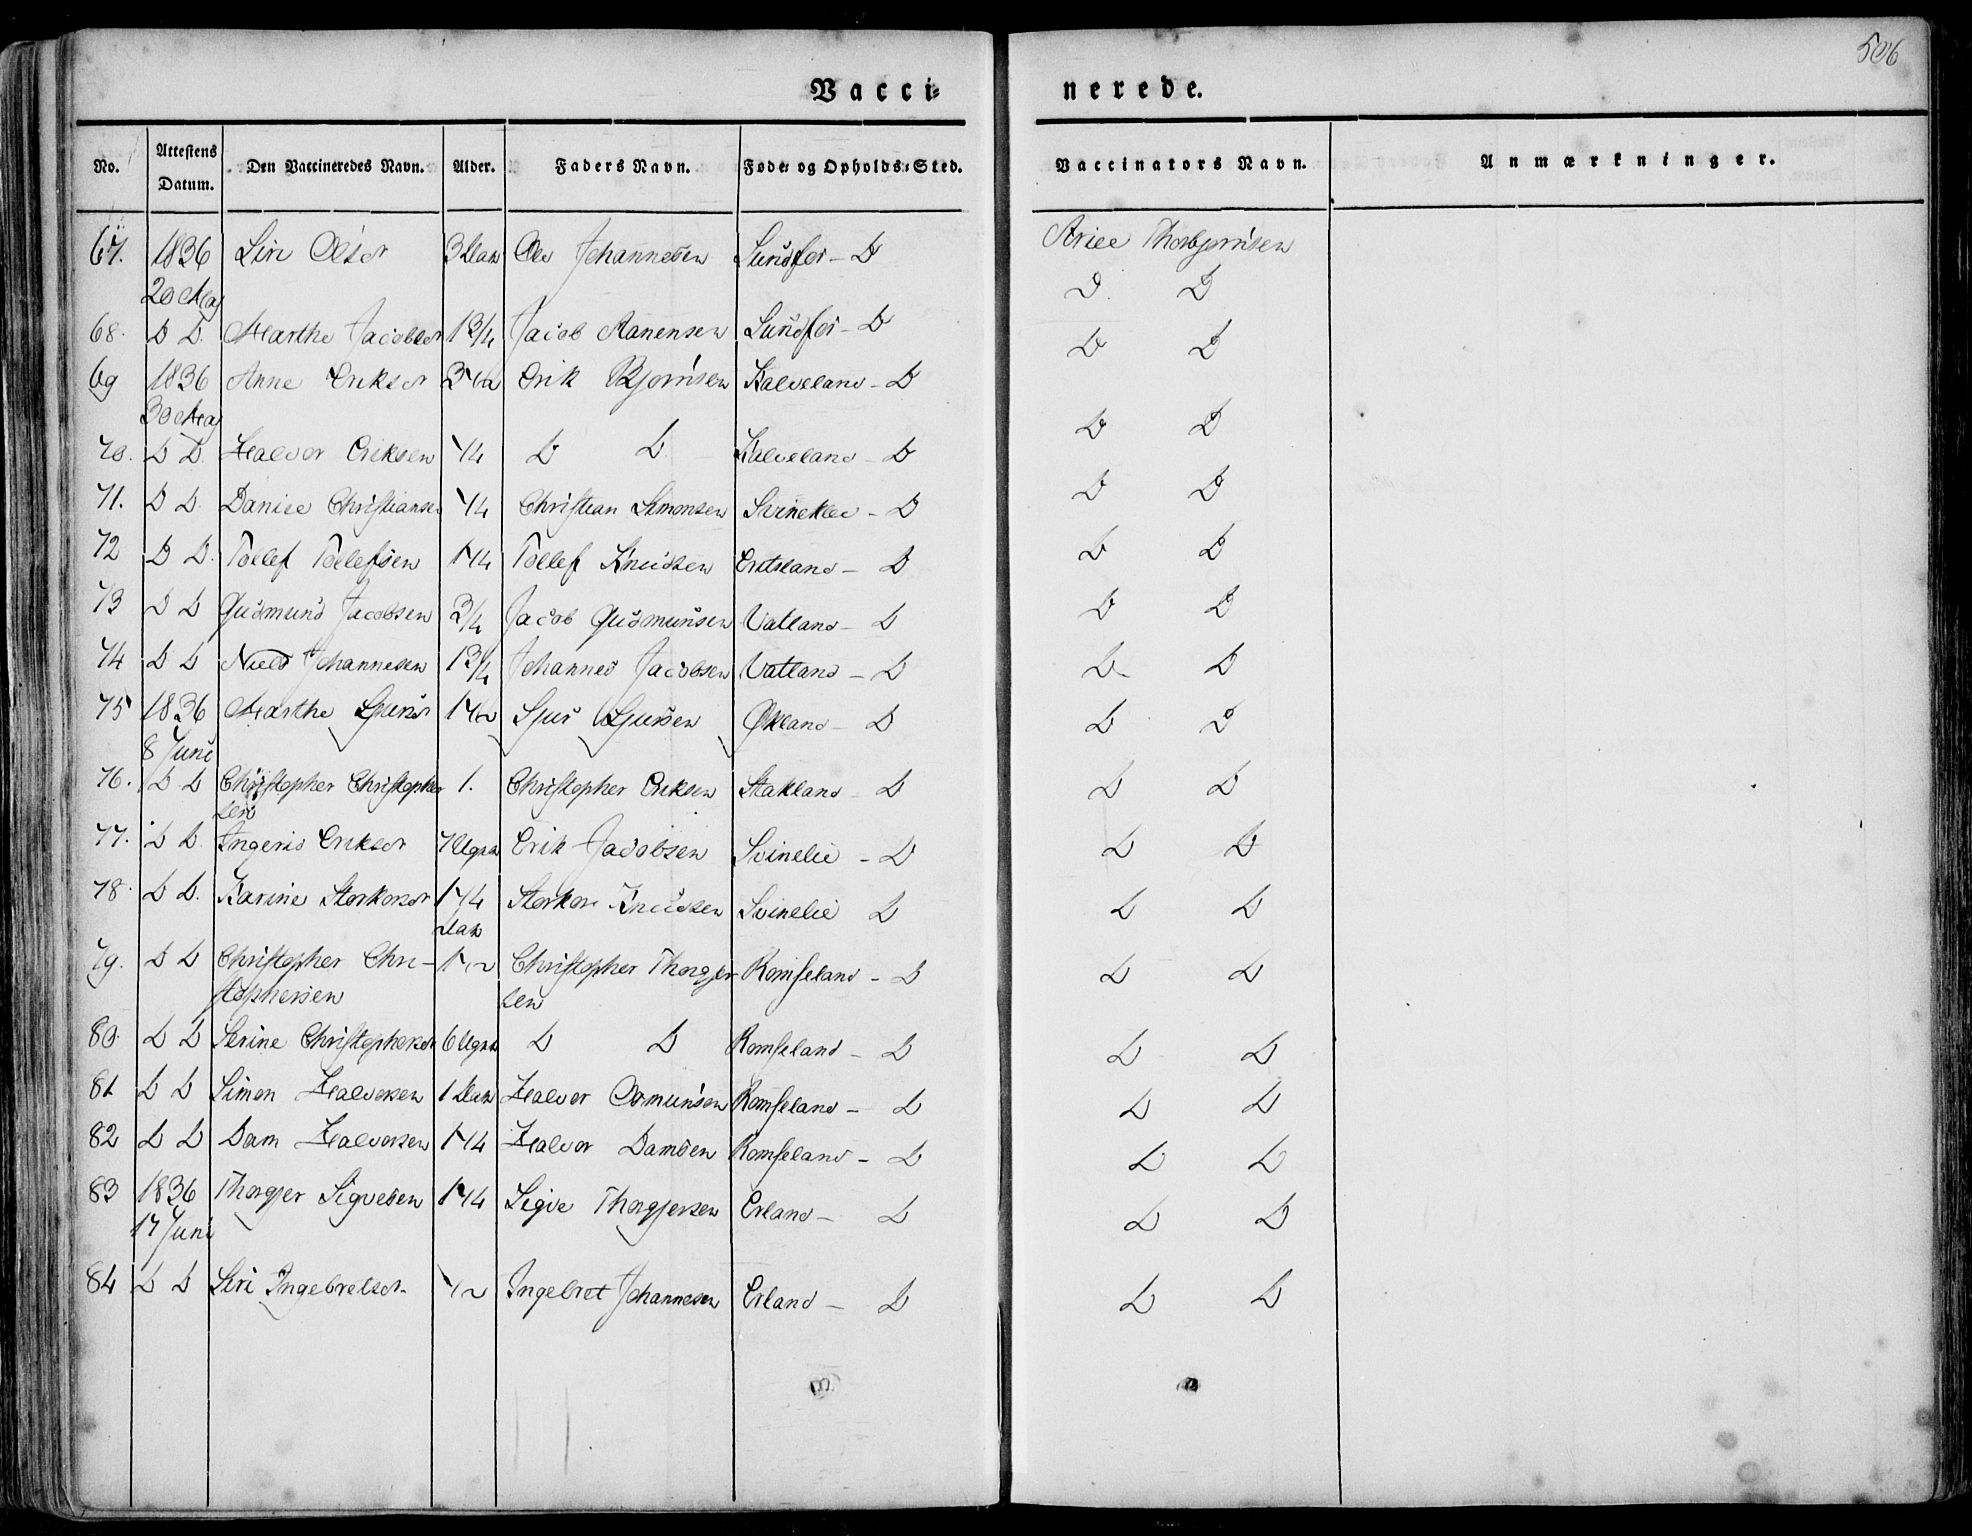 506
Vacci=
nerede.
No. Attestens Datum. Den Vaccineredes Navn. Alder. Faders Navn. Føde= og Opholds=Sted. Vaccinators Navn. Anmærkninger.
67. 1836 Siri Olsdr 3 Ole Johannesen Sundfør - D Thorbjørnsen
20 Maj D. D
68. D D. Marthe Jacobsdr 1 3/4 Jacob Ranensen Sundfør - D D D
69 1836 Anne Eriksdr 3 1/2 Erik Bjørnsen Kalveland - D
30 Maj D D
70. D D. Halvor Eriksen 1/4 D D Kalveland - D
71. D D. Daniel Christiansen 1/4 Christian Simonsen - D D D
72 D D. Tollef Tollefsen 1 1/4 Tollef Knudsen - D D D
73 D D Gudmund Jacobsen 3/4 Jacob Gudmunsen Vatland - D D D
74 D D Niels Johannesen 1 3/4 Johannes Jacobsen Vatland - D D D
75 1836 Marthe Sjursdr 1 1/2 Sjur Sjursen Økland - D D D
8 Juni
76. D D Christopher Christopher 1. Christopher Eriksen Stakland - D D D
sen
77. D D. Ingeris Eriksdr 7 Ugr Erik Jacobsen Svinelie - D D D
78 D D. Karine Storkorsdr 1 1/4 Storkor Knudsen Svinelie D D D
79. D D Christopher Chri- 1 1/2 Christopher Thorgjer Romseland - D D D
stophersen sen
80. D D Serine Christophersdr 6 Ugr D D Romseland - D D D
81 D D Simon Halvorsen 1 Halvor Osmunsen Romseland - D D D
82 D D Dam Halvorsen 1 1/4 Halvor Damsen Romseland - D D D
83 1836 Thorgjer Sigvesen 1 1/4 Sigve Thorgjersen Erland - D D D
17 Juni
84 D D Siri Ingebretsdr 1/2 Ingebret Johannesen Erland - D D D